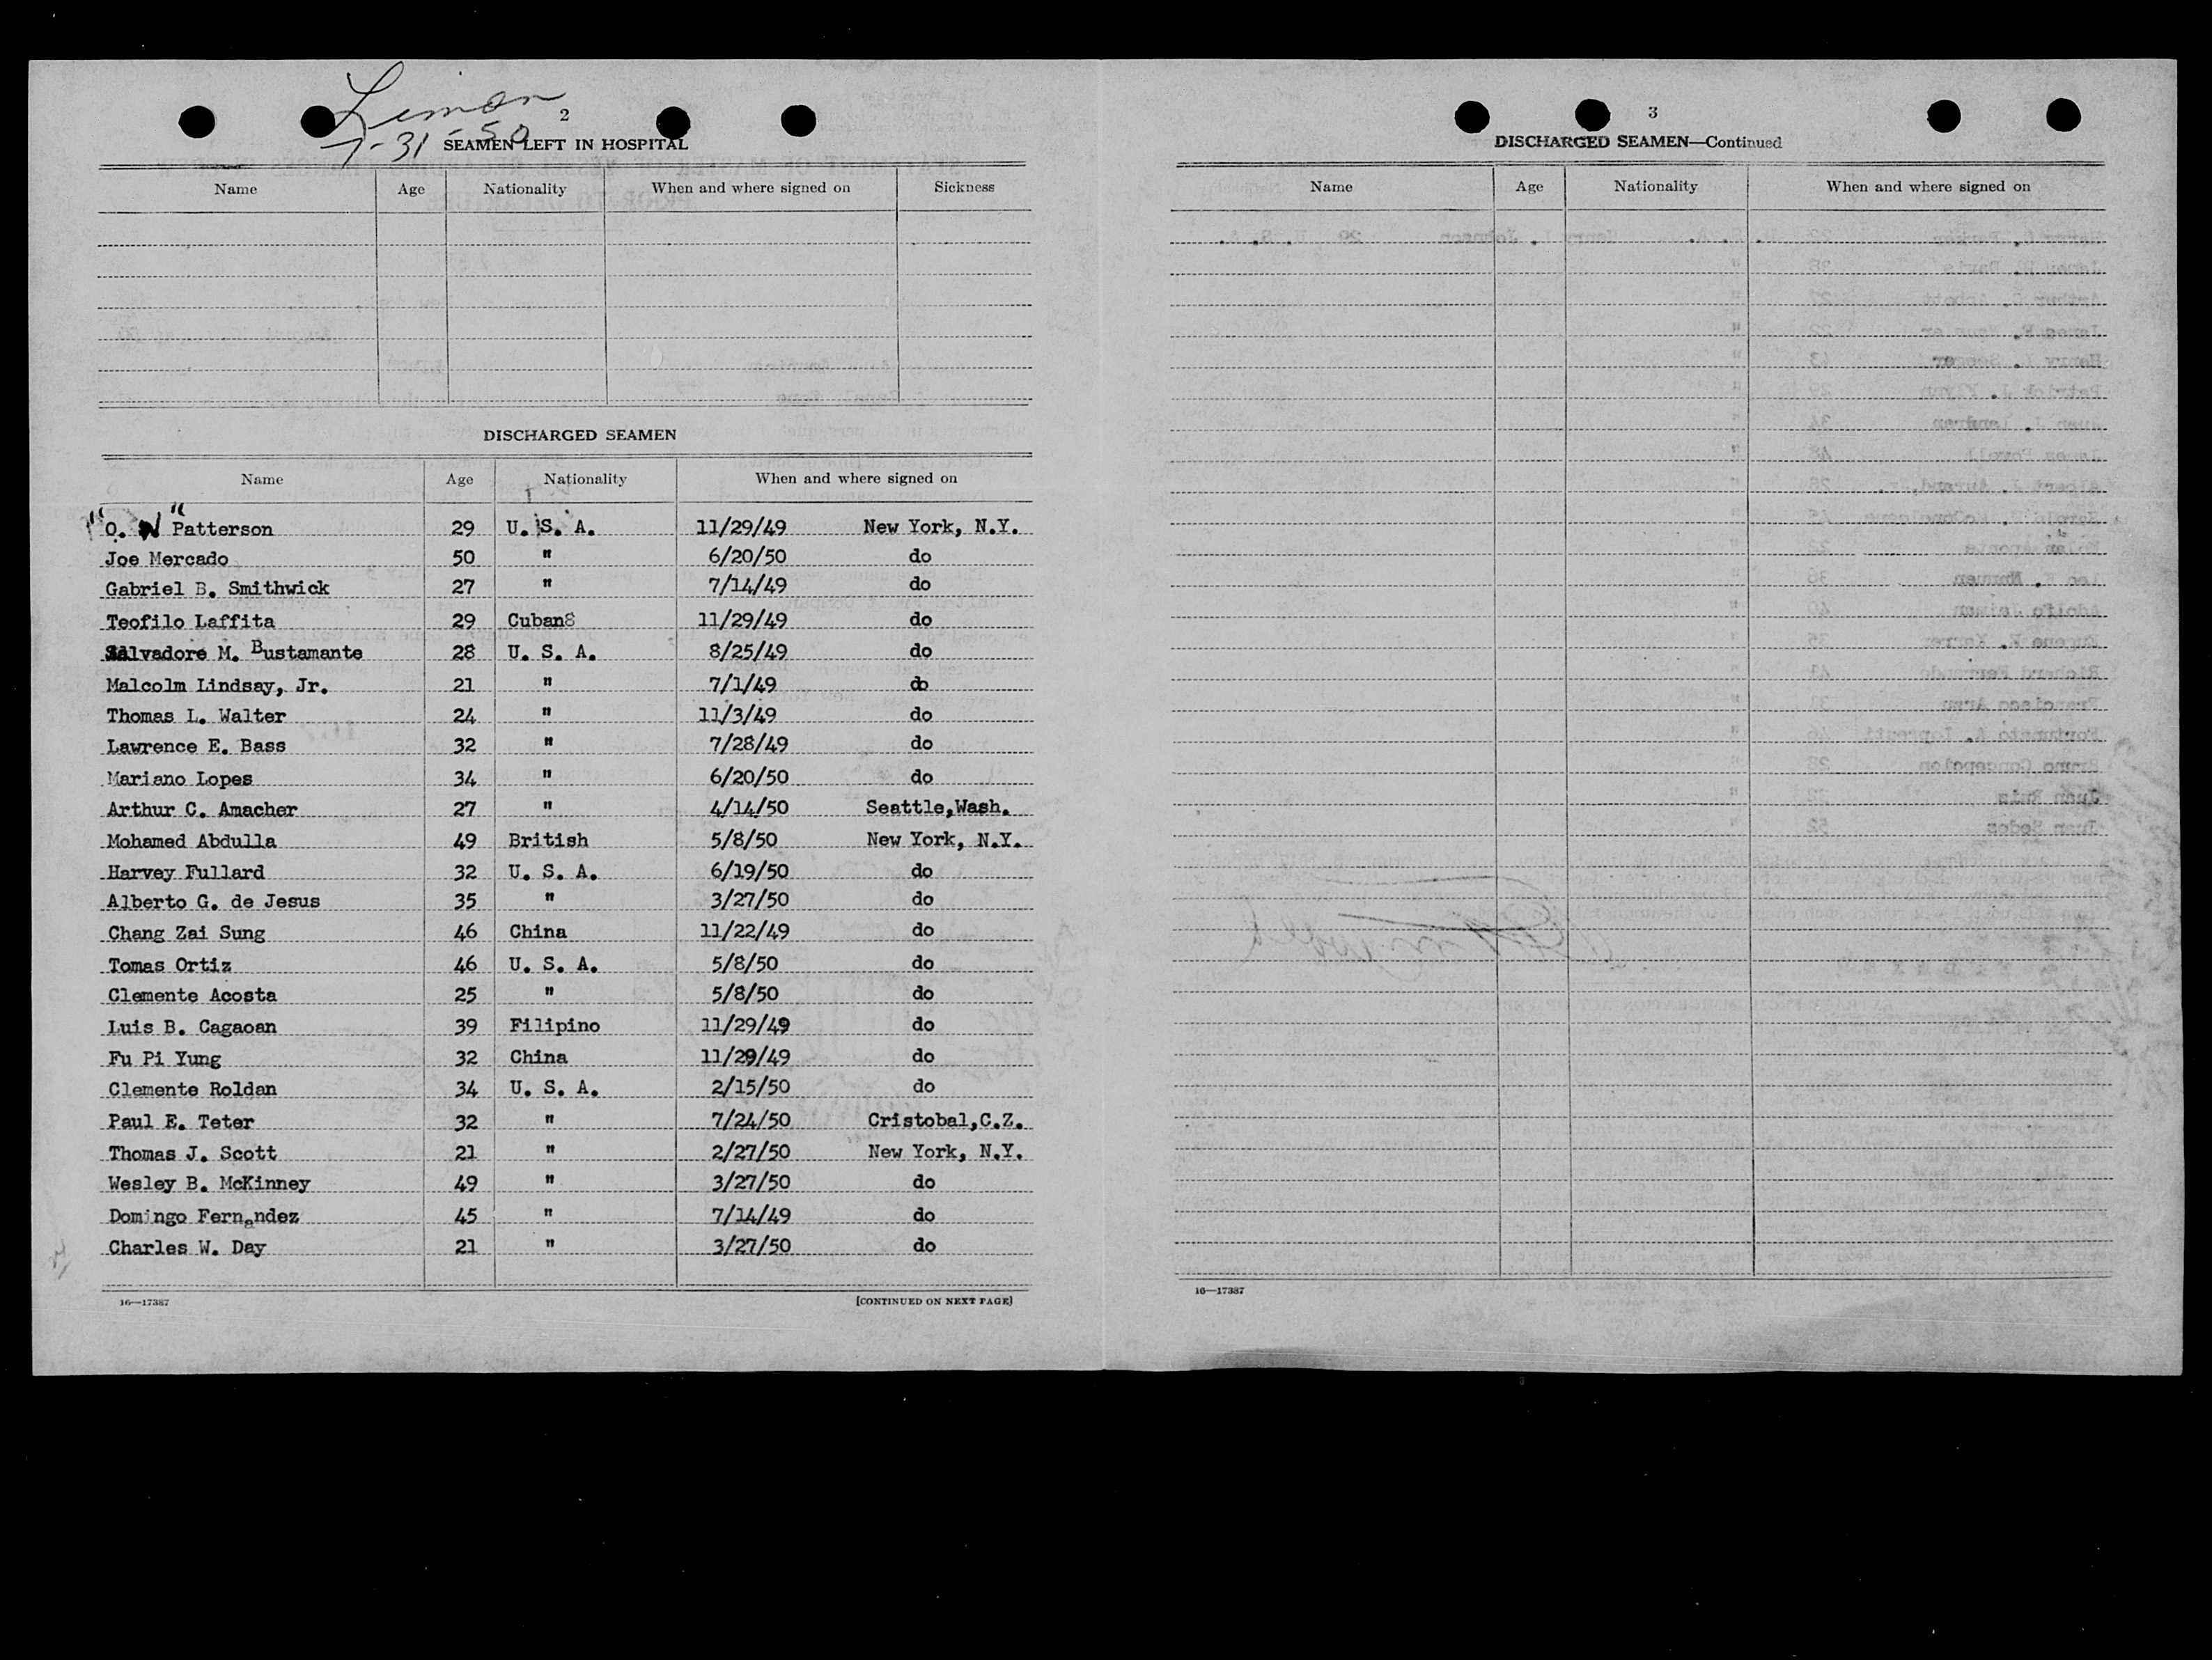 Limon
7-31-50
2
SEAMEN LEFT IN HOSPITAL
Name Age Nationality When and where signed on Sickness
DISCHARGED SEAMEN
Name Age Nationality When and where signed on
"O. W" Patterson 29 U. S. A. 11/29/49 New York, N.Y.
Joe Mercado 50 " 6/20/50 do
Gabriel B. Smithwick 27 " 7/14/49 do
Teofilo Laffita 29 Cuban8 11/29/49 do
Salvadore M. Bustamante 28 U. S. A. 8/25/49 do
Malcolm Lindsay, Jr. 21 " 7/1/49 do
Thomas L. Walter 24 " 11/3/49 do
Lawrence E. Bass 32 " 7/28/49 do
Mariano Lopes 34 " 6/20/50 do
Arthur C. Amacher 27 " 4/14/50 Seattle,Wash.
Mohamed Abdulla 49 British 5/8/50 New York, N.Y.
Harvey Fullard 32 U. S. A. 6/19/50 do
Alberto G. de Jesus 35 " 3/27/50 do
Chang Zai Sung 46 China 11/22/49 do
Tomas Ortiz 46 U. S. A. 5/8/50 do
Clemente Acosta 25 " 5/8/50 do
Luis B. Cagaoan 39 Filipino 11/29/49 do
Fu Pi Yung 32 China 11/29/49 do
Clemente Roldan 34 U. S. A. 2/15/50 do
Paul E. Teter 32 " 7/24/50 Cristobal,C.Z.
Thomas J. Scott 21 " 2/27/50 New York, N.Y.
Wesley B. McKinney 49 " 3/27/50 do
Domingo Fernandez 45 " 7/14/49 do
Charles W. Day 21 " 3/27/50 do
16—17387
[CONTINUED ON NEXT PAGE]
3
DISCHARGED SEAMEN—Continued
Name Age Nationality When and where signed on
16—17387